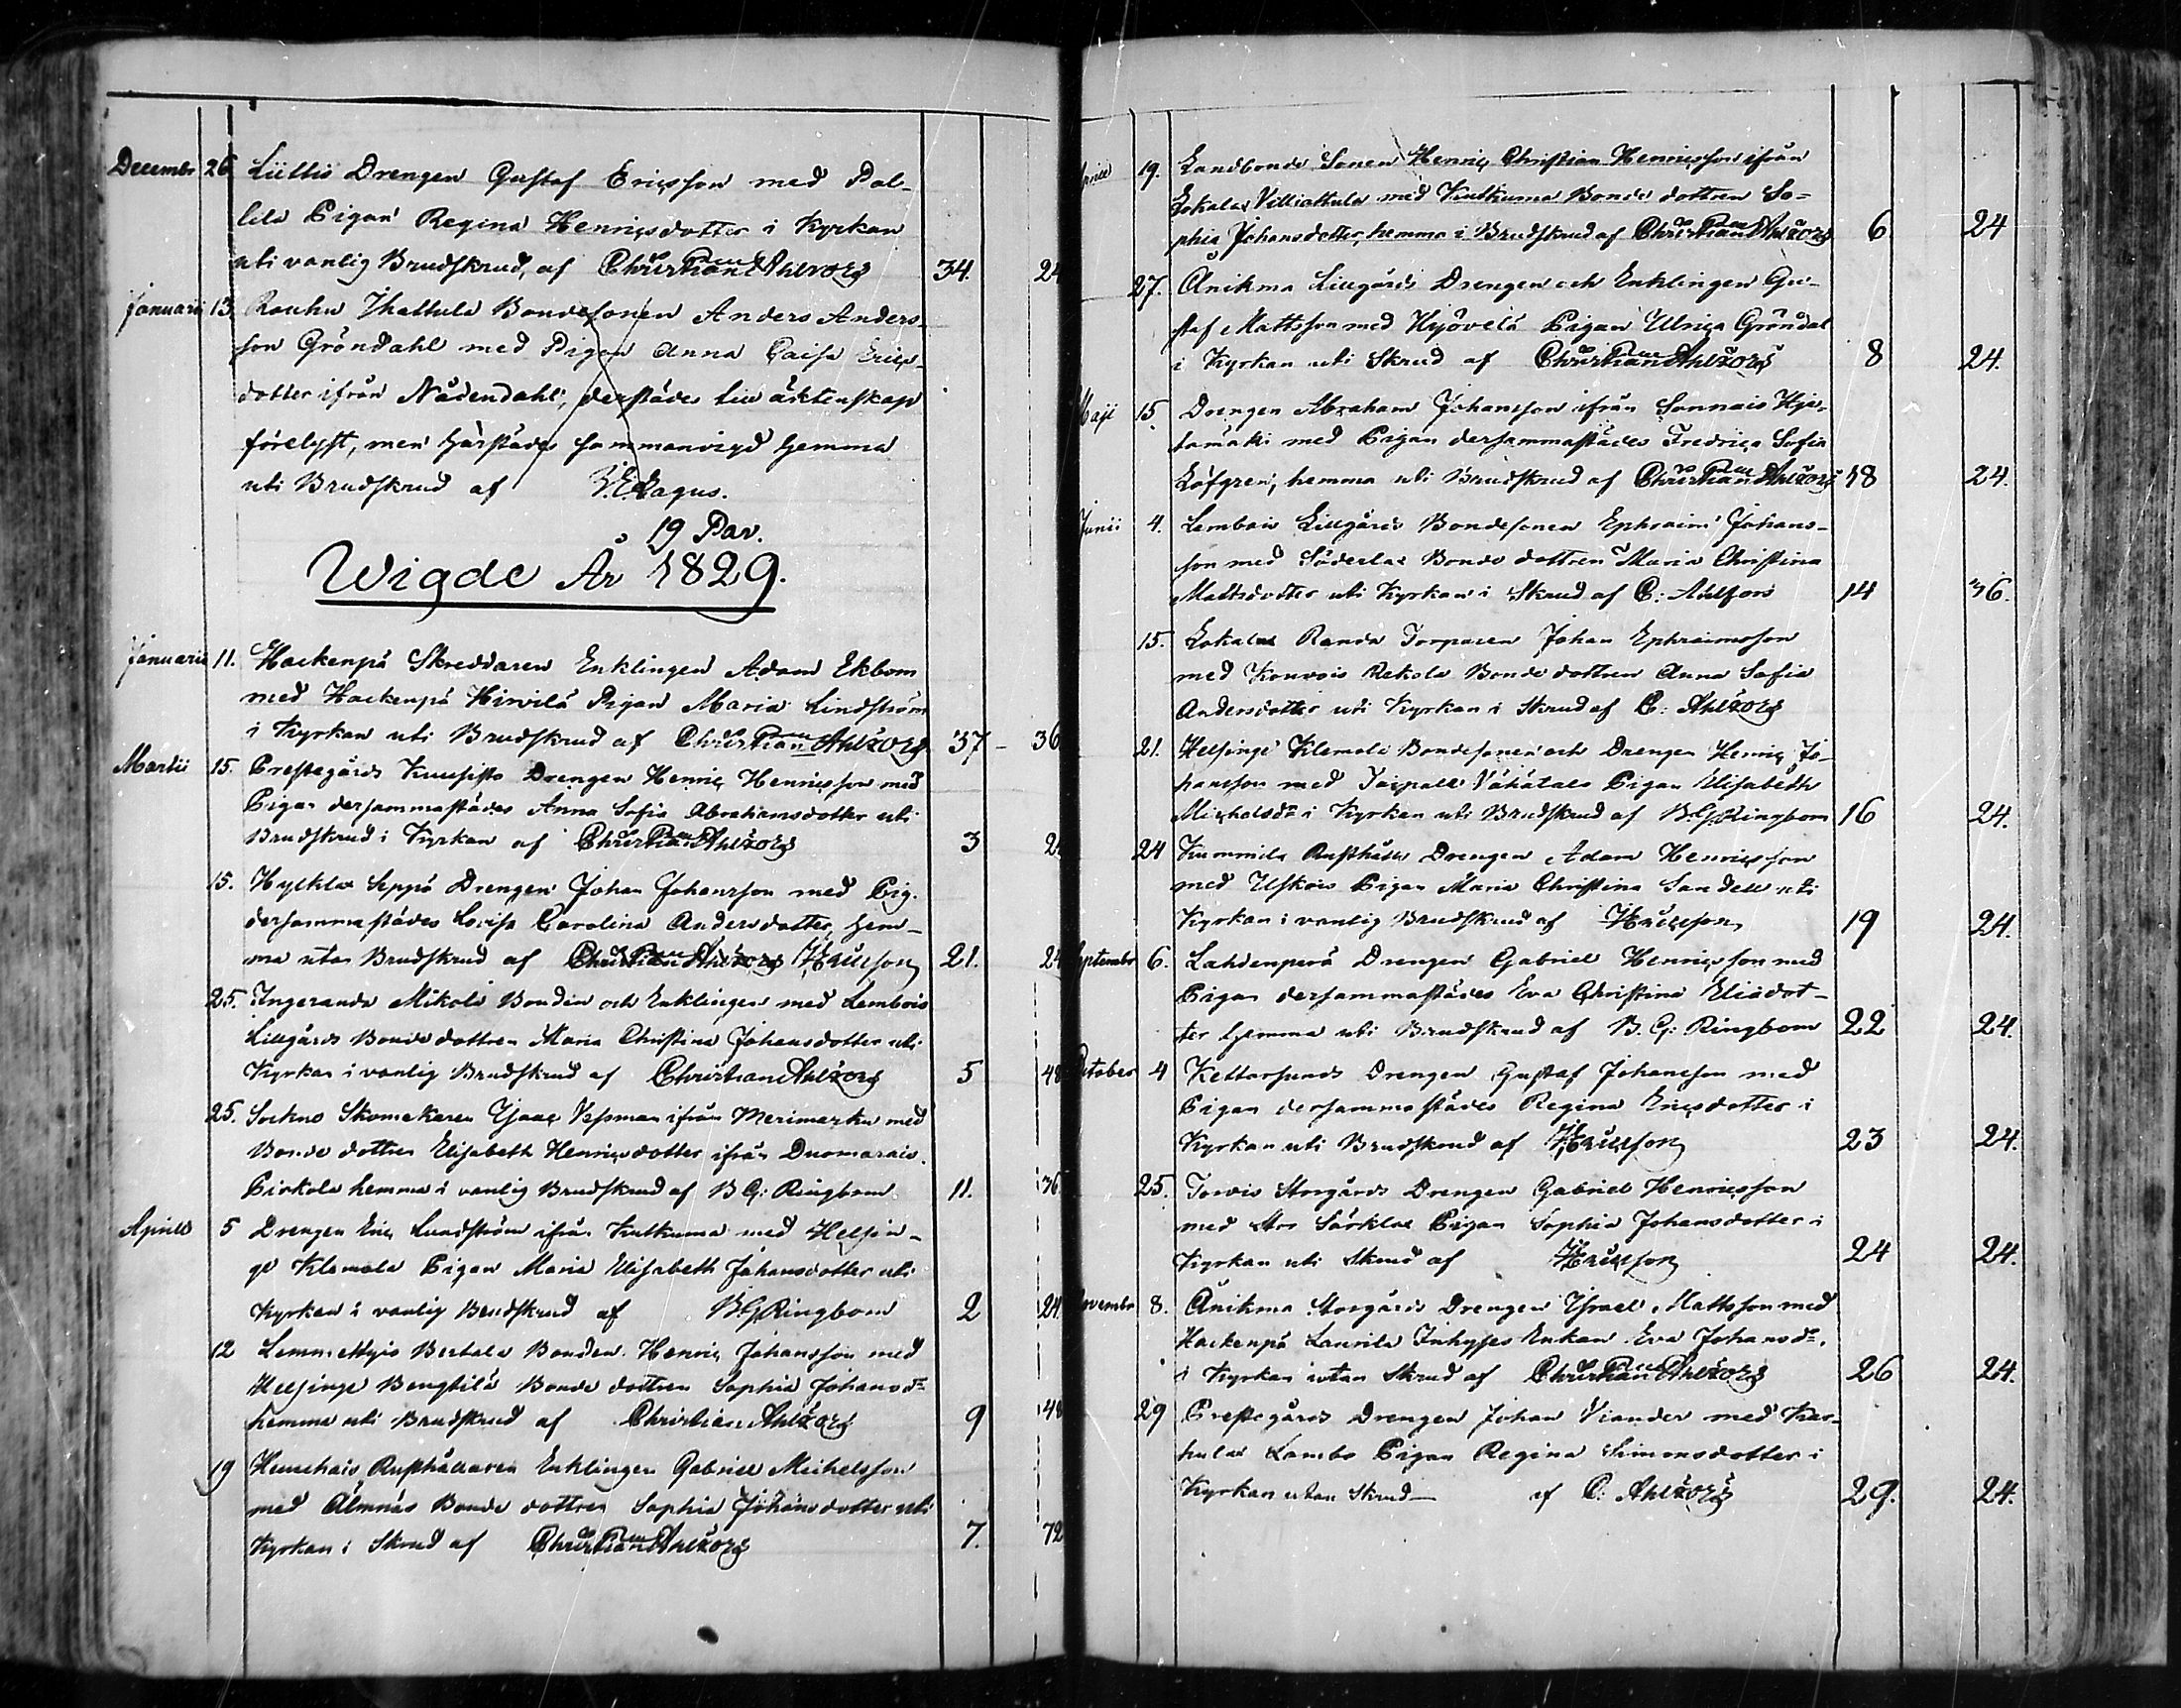 Decembr 26 Lüttis Drengen Gustaf Ericsson med Pal-
lila Pigan Regina Henricsdotter i Kyrkan
uti vanlig Brudskrud, af Christian Ahlfors 34. 24
Januarii 13. Rauhu Ihattula Bondesonen Anders Anders-
son Gröndahl med Pigan Anna Caisa Erics-
dotter ifrån Nådendahl, derstädes till äktenskap
förelyst, men härstädes sammanvigd hemma
uti Brudskrud af Lagus.
19 Par.
Wigde År 1829.
Januarii 11. Hackenpä Skreddaren Enklingen Adam Ekbom
med Hackenpä Hirvilä Pigan Maria Lindström
i Kyrkan uti Brudskrud af Christian Ahlfors 37 - 36
Martii 15. Prestegårds Kuusisto Drengen Henric Henricsson med
Pigan dersammastädes Anna Sofia Abrahamsdotter uti
Brudskrud i Kyrkan af Christian Ahlfors 3 24
15. Hylkilä Seppä Drengen Johan Johansson med Pig.
dersammastädes Lovisa Carolina Andersdotter, hem-
ma utan Brudskrud af Christian Ahlfors 21. 24
25. Ingeranda Mikola Bonden och Enklingen med Lembois
Lillgårds Bonde dottren Maria Christina Johansdotter uti
Kyrkan i vanlig Brudskrud af Christian Ahlfors 5 48
25. Skomakaren Isaac Vesman ifrån Merimasku med
Bonde dottren Elisabeth Henricsdotter ifrån Duomarais
Pirkola hemma i vanlig Brudskrud af B G: Ringbom 11. 36
Aprill 5 Drengen Eric Lundström ifrån Kutkuma med Helsin-
ge Klemola Pigan Maria Elisabeth Johansdotter uti
Kyrkan i vanlig Brudskrud af B. G Ringbom 2 24
12 Lemmettyis Bertala Bonden Henric Johansson med
Helsinge Bengtilä Bonde dottren Sophia Johansdr
hemma uti Brudskrud af Christian Ahlfors 9 48
19 Rusthållaren Enklingen Gabriel Michelsson
med Älmnäs Bonde dottren Sophia Johansdotter uti
Kyrkan i Skrud af Christian Ahlfors 7. 72
19. Landbonde Sonen Henric Christian Henricsson ifrån
Lokalax Villiattula med Kutkuma Bonde dottren So-
phia Johansdotter, hemma i Brudskrud af Christian Ahlfors 6 24
27. Änikma Lillgårds Drengen och Enklingen Gu-
staf Mattsson med Hyövelä Pigan Ulrica Gröndal
i Kyrkan uti Skrud af Christian Ahlfors 8 24.
Maji 15. Drengen Abraham Johansson ifrån Sonnais Hjer-
tamäki med Pigan dersammastädes Fredrica Sofia
Löfgren, hemma uti Brudskrud af Christian Ahlfors 18 24.
Junii 4. Lembois Lillgårds Bondesonen Ephraim Johans-
son med Söderlax Bonde dottren Maria Christina
Mattsdotter uti Kyrkan i Skrud af C: Ahlfors 14 36.
15. Lokalax Randa Torparen Johan Ephraimsson
med Kouvois Rekola Bonde dottren Anna Sofia
Andersdotter uti Kyrkan i Skrud af C: Ahlfors
21. Helsinge Klemola Bondesonen och Drengen Henric Jo-
hansson med Taipale Vähätalo Pigan Elisabeth
Michelsdr i Kyrkan uti Brudskrud af B. G. Ringbom 16 24.
24 Kummila Rusthålls Drengen Adam Henricsson
med Uskois Pigan Maria Christina Sandell uti
Kyrkan i vanlig Brudskrud af 19 24.
Septembr 6. Lahdenperä Drengen Gabriel Henricsson med
Pigan dersammastädes Eva Christina Eliædot-
ter hemma uti Brudskrud af B. G: Ringbom 22 24.
October 4 Kettarsunds Drengen Gustaf Johansson med
Pigan dersammastädes Regina Ericsdotter i
Kyrkan uti Brudskrud af 23 24.
25. Torvis Storgårds Drengen Gabriel Henricsson
med Stor Särklax Pigan Sophia Johansdotter i
Kyrkan uti Skrud af 24 24.
Novembr 8. Änikma Storgårds Drengen Israel Mattsson med
Hackenpä Laurila Inhyses Enkan Eva Johansdr.
i Kyrkan utan Skrud af Christian Ahlfors 26 24.
29 Prestegårds Drengen Johan Viander med Kar-
hula Lambo Pigan Regina Simonsdotter i
Kyrkan utan Skrud — af C: Ahlfors 29. 24.